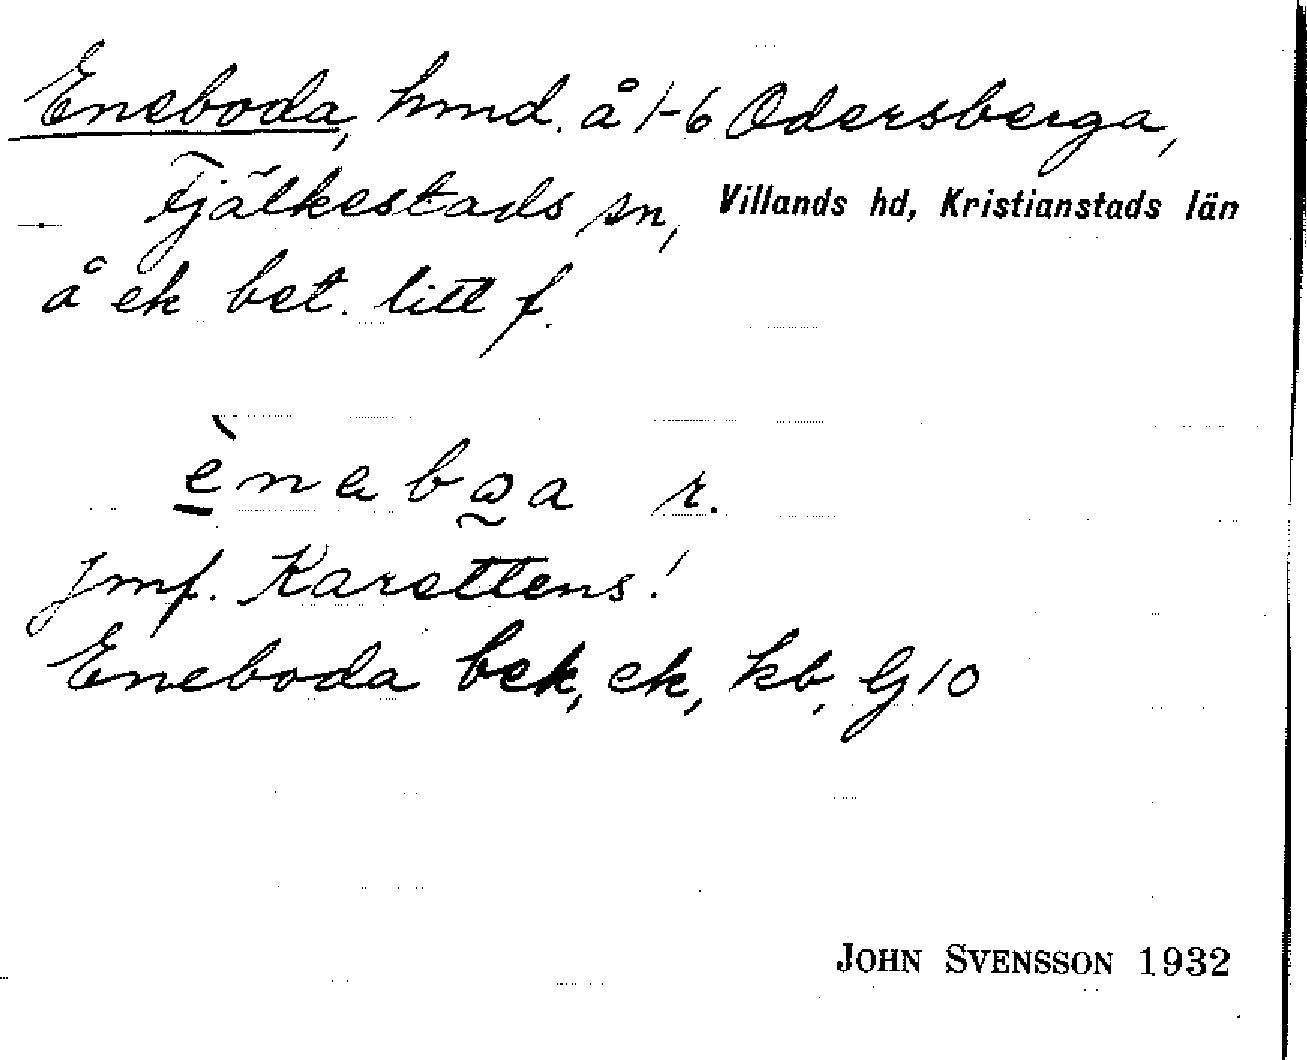 Eneboda, hmd. å 1-6 Odersberga,
Fjälkestads sn, Villands hd, Kristianstads län
å ek bet. litt f.
ènaboa r.
Jmf. Karettens!
Eneboda bek, ek, kb, Gj 10
JOHN SVENSSON 1932